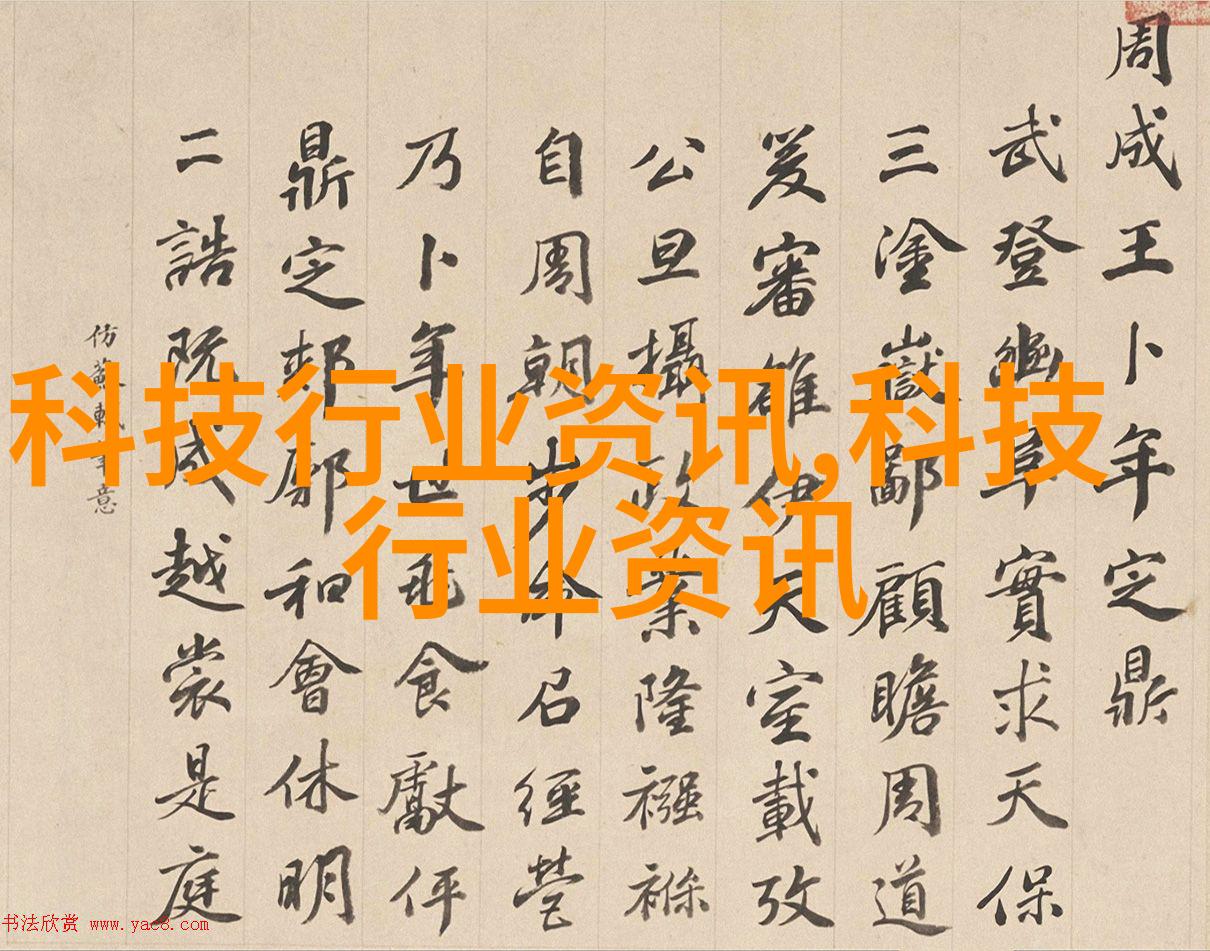 周成王卜年定鼎
武登豳阜實求天保
三塗嶽鄙顧瞻周道
爰審雒伊天室載攷
公旦攝政業隆襁褓
自周朝步命召經營
乃卜年世食獻伻
鼎定郟鄏和會休明
二誥既成越裳是庭
仿蘇軾筆意
科技行业资讯,科技
行业资讯
书法欣赏 www.yac8.com